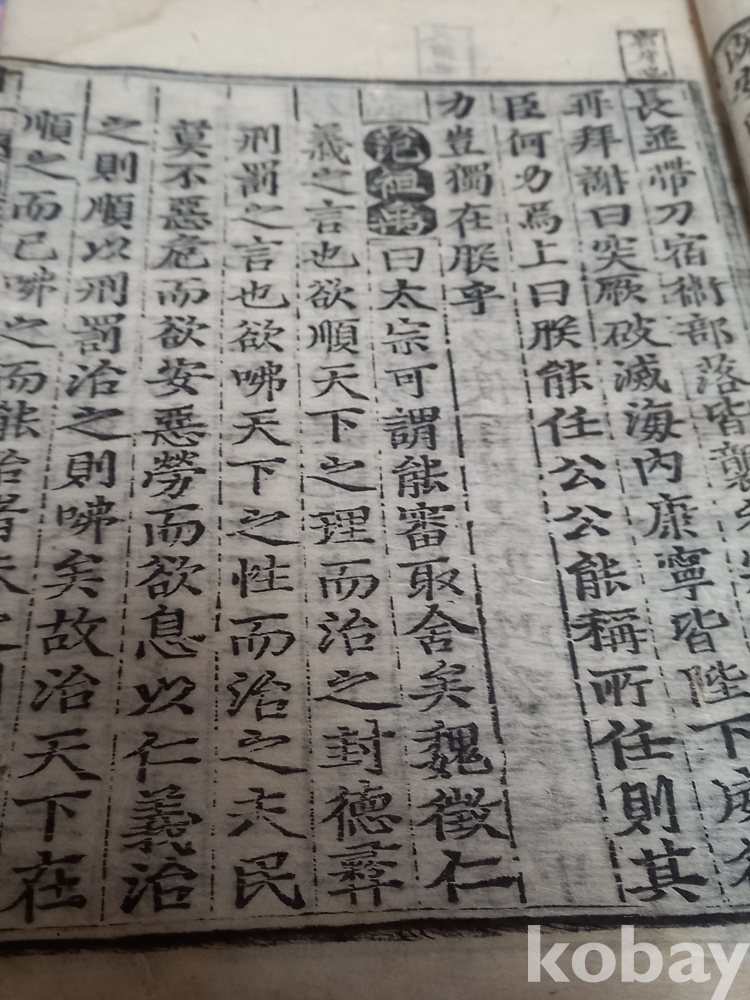 長並帶刀宿衛部落皆襲
再拜謝曰突厥破滅海內康寧皆陛下威
臣何力焉上曰朕能任公公能稱所任則其
力豈獨在朕乎
范祖禹曰太宗可謂能審取舍矣魏徵仁
義之言也欲順天下之理而治之封德彝
刑罰之言也欲咈天下之性而治之夫民
莫不惡危而欲安惡勞而欲息以仁義治
之則順以刑罰治之則咈矣故治天下在
順之而已咈之而能治者未之
kobay